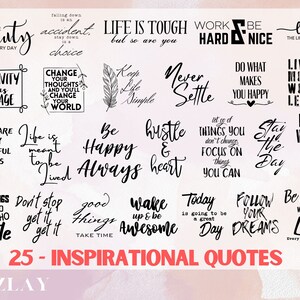 falling down
is an
accident,
stay down
is a
choice
LIFE IS TOUGH
but so are you
WORK & BE
HARD & NICE
CHANGE
YOUR
THOUGHTS
AND YOU'LL
CHANGE
YOUR
WORLD
Keep
Life
Simple
Never
Settle
DO WHAT
MAKES
YOU HAPPY
Life is
meant
to be
Lived
Be
Happy
Always
hustle
&
heart
let go of
THINGS YOU
don't change
FOCUS ON
things
YOU CAN
Stay
the
Day
Don't stop
get it
get it
good
Things
TAKE TIME
wake
up & be
Awesome
Today
is going to be
a great
Day
FOLLOW
YOUR
DREAMS
25 - INSPIRATIONAL QUOTES